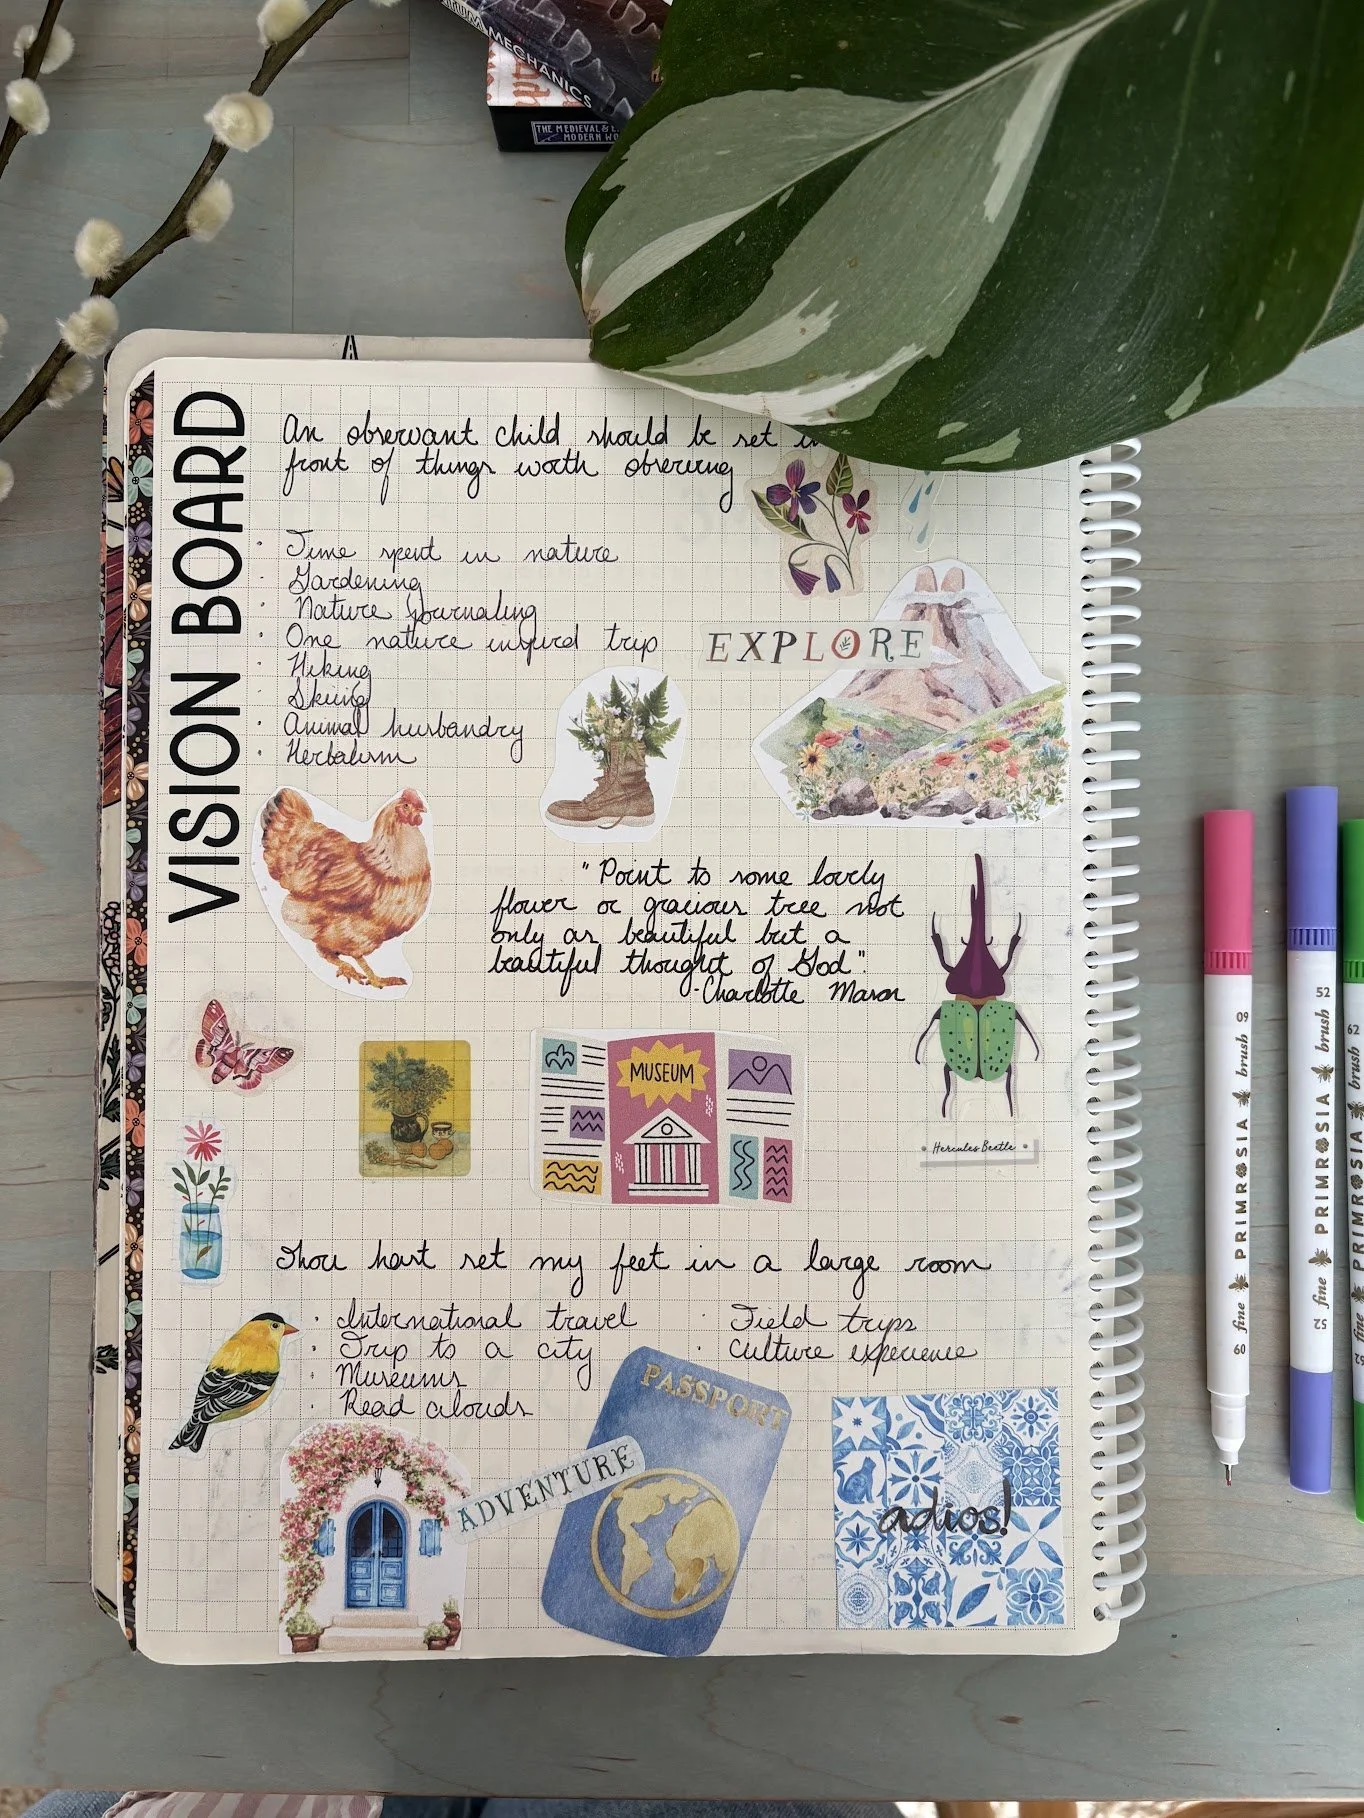 MECHANICS
THE MEDIEVAL & E
MODERN WO
VISION BOARD
An observant child should be set in
front of things worth observing
· Time spent in nature
· Gardening
· Nature journaling
· One nature inspired trip
· Hiking
· Skiing
· Animal husbandry
· Herbalism
EXPLORE
"Point to some lovely
flower or gracious tree not
only as beautiful but a
beautiful thought of God".
-Charlotte Mason
MUSEUM
Hercules Beetle
Thou hast set my feet in a large room
· International travel
· Trip to a city
· Museums
· Read alouds
· Field trips
· Culture experience
PASSPORT
ADVENTURE
adios!
09 fine PRIMROSIA brush 60
52 fine PRIMROSIA brush 52
62 fine PRIMROSIA brush